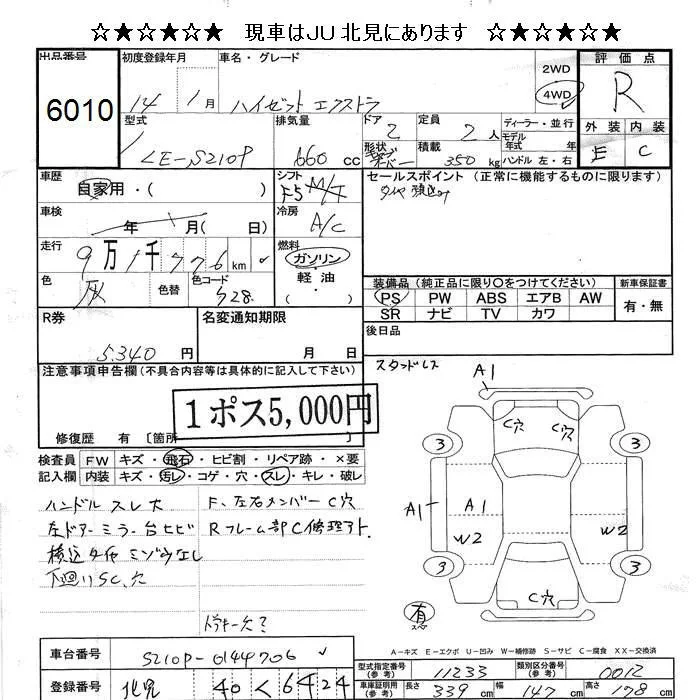 ☆★☆★☆★ 現車はJU北見にあります ☆★☆★☆★
出品番号 初度登録年月 車名・グレード 評価点
6010 14 1月 ハイゼット エクストラ 2WD 4WD R
型式 排気量 ドア 定員 ディーラー・並行 外装 内装
LE-S210P 660cc 2 2人 モデル年式 年 E C
形状 積載 350kg ハンドル 左・右
車歴 シフト セールスポイント (正常に機能するものに限ります)
自家用・( ) F5 M/T タイヤ積込み
車検 冷房
年 月( 日) A/C
走行 燃料
9万1千776km ガソリン
色 色替 色コード 軽油
灰 S28 ・( )
装備品(純正品に限り○をつけてください) 新車保証書
PS PW ABS エアB AW 有・無
SR ナビ TV カワ
R券 名変通知期限 後日品
5,340円 月 日
注意事項申告欄(不具合内容等は具体的に記入して下さい) スタッドレス
1ポス5,000円
修復歴 有 〔箇所 〕
検査員 FW キズ・飛石・ヒビ割・リペア跡・×要
記入欄 内装 キズ・汚レ・コゲ・穴・スレ・キレ・破レ
ハンドル スレ大 F、左右メンバーC穴
左ドアーミラー台ヒビ Rフレーム部C修理アト、
積込タイヤ ミゾウなし
下廻りSC、穴
ドアキー欠?
A1
C穴 C穴
3 3
A1 A1
W2 W2
3 3
C穴
有 スペ
A-キズ E-エクボ U-凹み W-補修跡 S-サビ C-腐食 XX-交換済
車台番号 S210P-0144706
型式指定番号(参考) 11233 類別区分番号(参考) 0012
登録番号 北見 40 く 6424
車庫証明用(参考) 長さ 339cm 幅 147cm 高さ 178cm